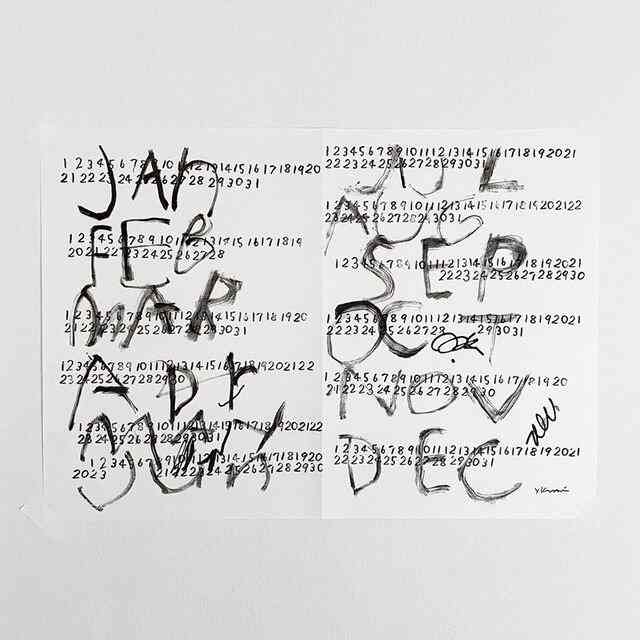 JAN
1 2 3 4 5 6 7 8 9 10 11 12 13 14 15 16 17 18 19 20
21 22 23 24 25 26 27 28 29 30 31
FEB
1 2 3 4 5 6 7 8 9 10 11 12 13 14 15 16 17 18 19
20 21 22 23 24 25 26 27 28
MAR
1 2 3 4 5 6 7 8 9 10 11 12 13 14 15 16 17 18 19 20
21 22 23 24 25 26 27 28 29 30 31
APR
1 2 3 4 5 6 7 8 9 10 11 12 13 14 15 16 17 18 19 20 21 22
23 24 25 26 27 28 29 30
1 2 3 4 5 6 7 8 9 10 11 12 13 14 15 16 17 18 19 20 21 22
23 24 25 26 27 28 29 30 31
2023
JUL
1 2 3 4 5 6 7 8 9 10 11 12 13 14 15 16 17 18 19 20 21
22 23 24 25 26 27 28 29 30 31
AUG
1 2 3 4 5 6 7 8 9 10 11 12 13 14 15 16 17 18 19 20 21 22
23 24 25 26 27 28 29 30 31
SEP
1 2 3 4 5 6 7 8 9 10 11 12 13 14 15 16 17 18 19 20 21
22 23 24 25 26 27 28 29 30
OCT
1 2 3 4 5 6 7 8 9 10 11 12 13 14 15 16 17 18 19 20 21
22 23 24 25 26 27 28 29 30 31
NOV
1 2 3 4 5 6 7 8 9 10 11 12 13 14 15 16 17 18 19 20
21 22 23 24 25 26 27 28 29 30
DEC
1 2 3 4 5 6 7 8 9 10 11 12 13 14 15 16 17 18 19 20 21
22 23 24 25 26 27 28 29 30 31